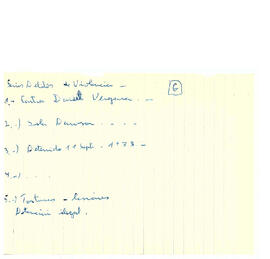 Seis Delitos de Violencia -
G
1.- Contra Daniel Vergara. -
2.-) Isla Dawson . . . .
3.-) Detenido 11 Sept. 1973. -
4.-) . . .
5.-) Torturas - lesiones
Detención ilegal.